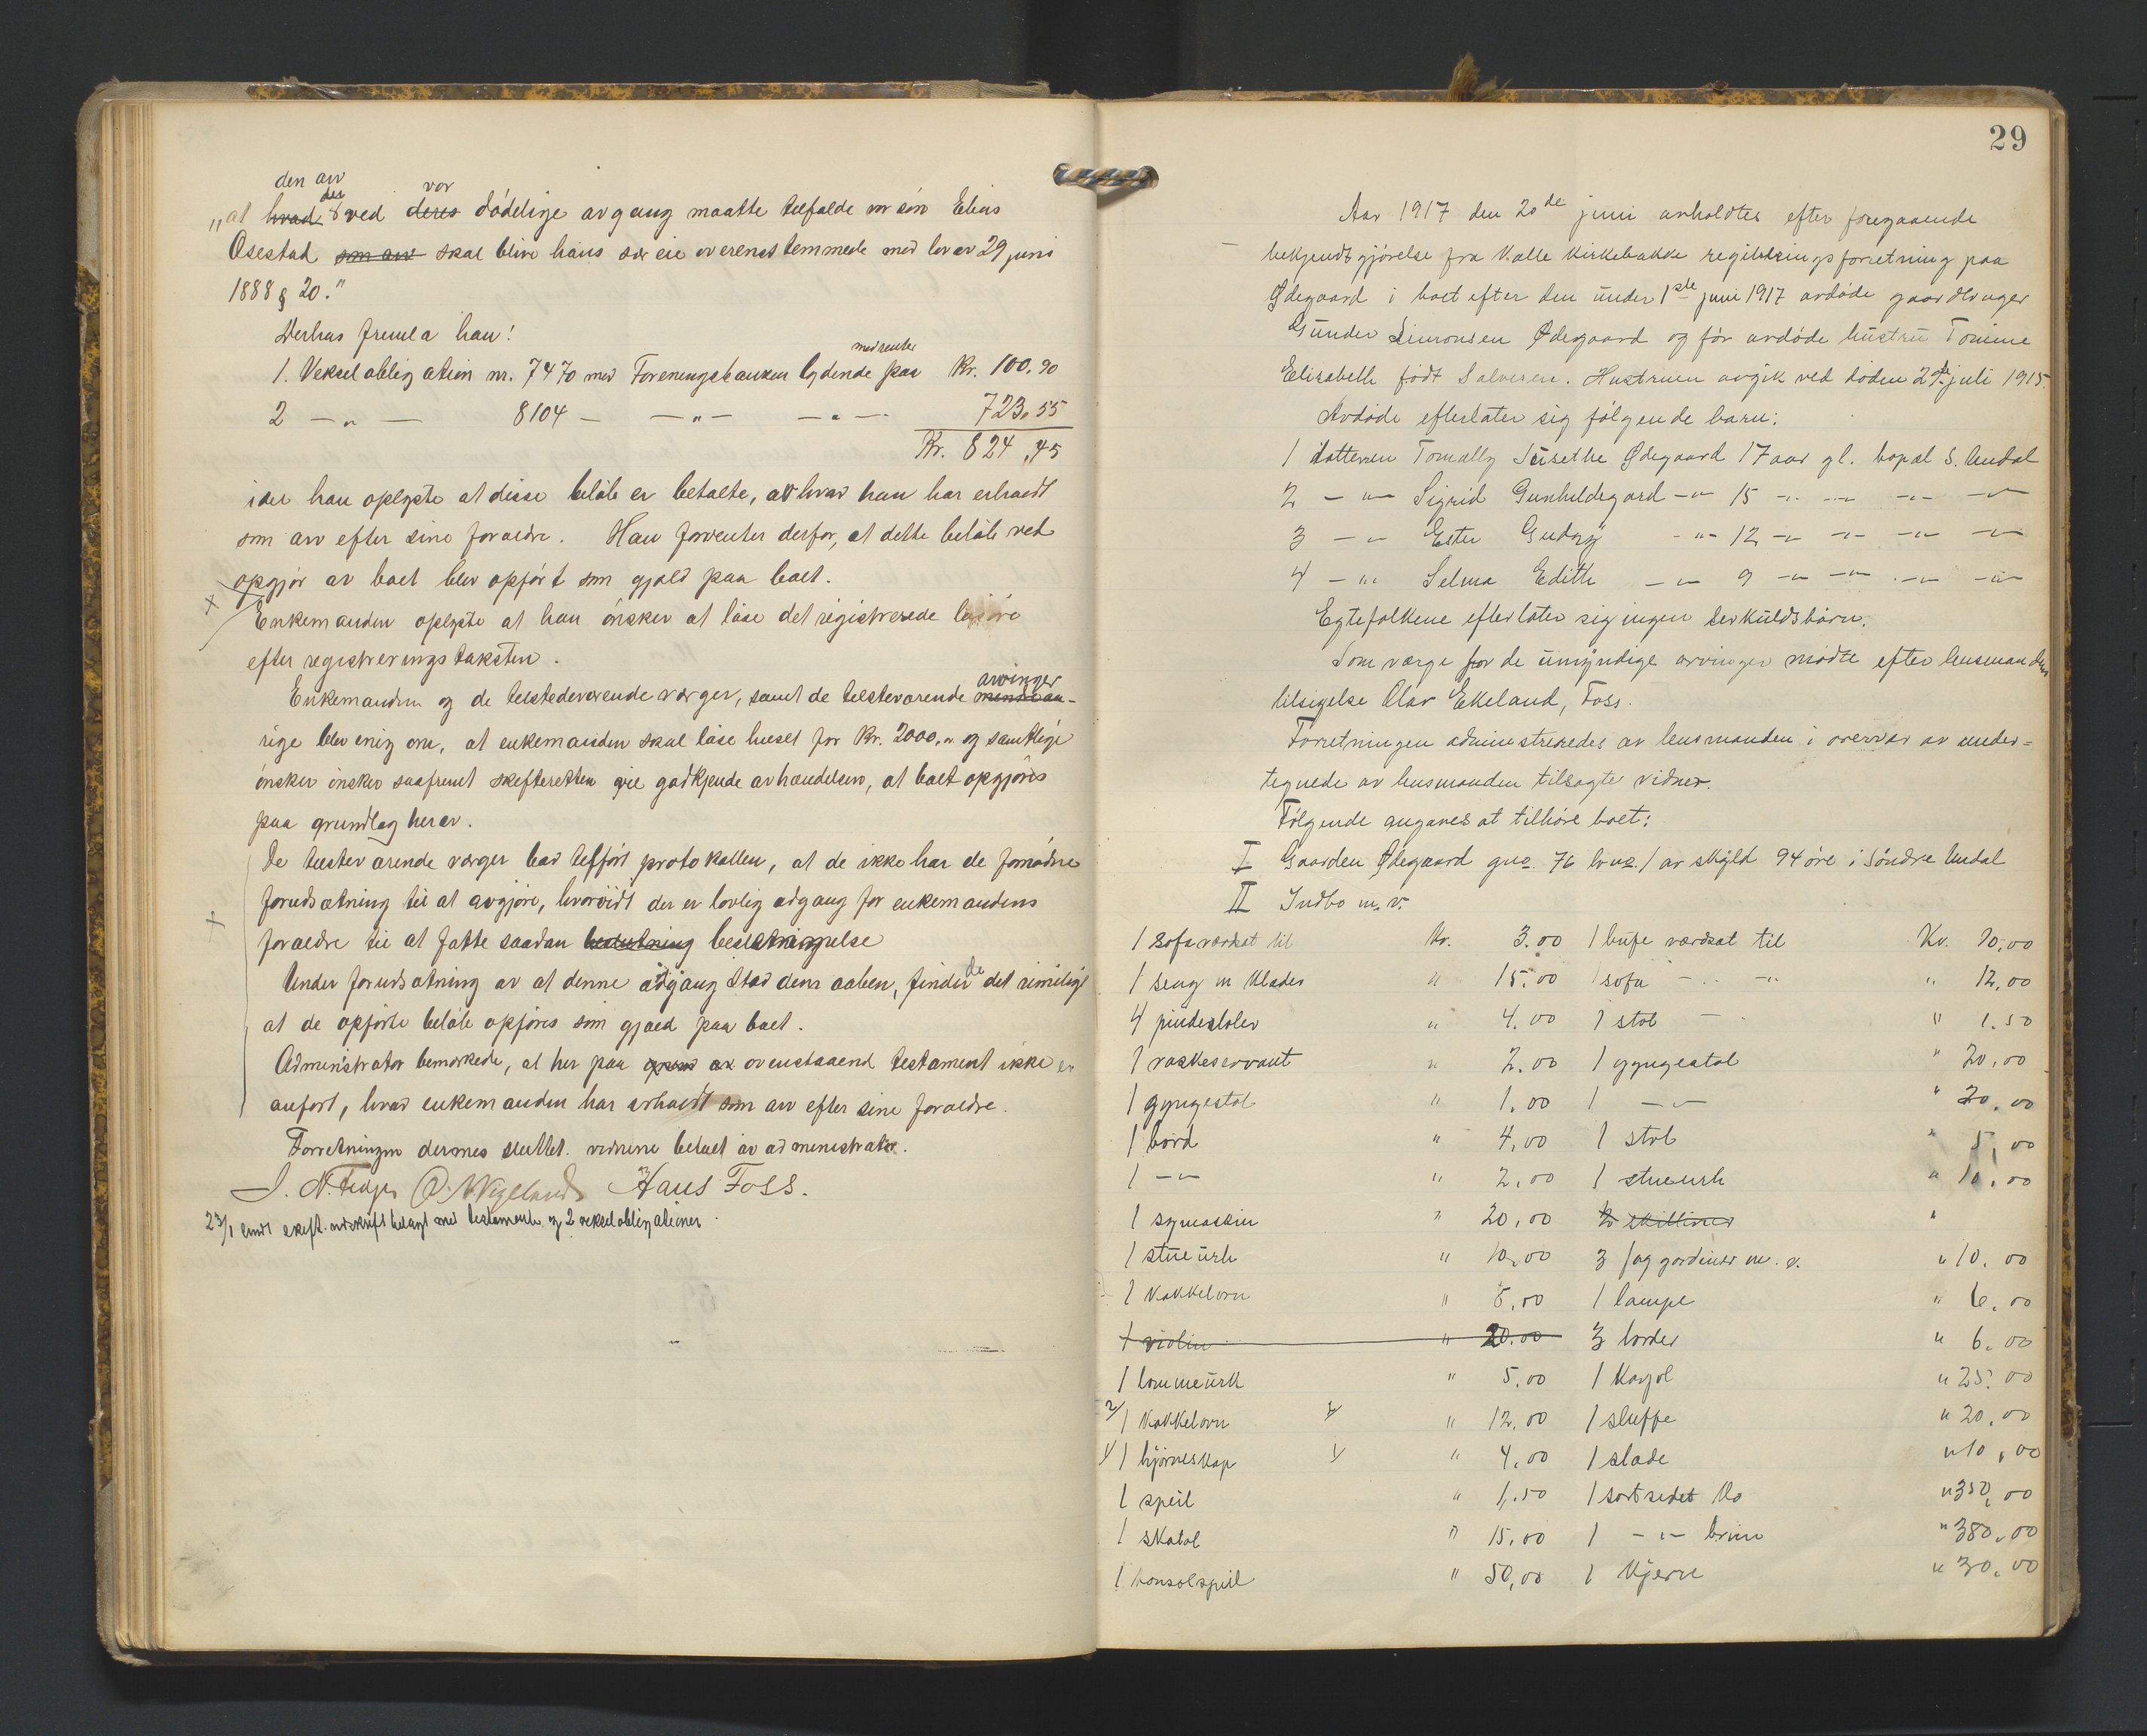 den arv der vor
"at hvad ved deres dödelige avgang maatte tilfalde vor sön Elias
Osestad som arv skal blive hans sær eie overenstemmede med lov av 29 juni
1888 § 20."
Derhas fremla han!
1. Veksel obligation nr. 7470 med Foreningsbanken lydende paa med renter Kr. 100.90
2 — " — 8104 — — " — — " — 723.55
Kr. 824,45
idet han oplyste at disse belöb er betalte, av hvad han har erhaedt
som arv efter sine foraeldre. Han forventer derfor, at dette belöb ved
opgjör av boet blev opfört som gjæld paa boet.
Enkemanden oplyste at han önsker at löse det registrerede lösöre
efter registreringstaksten.
Enkemanden og de telstedeverende værger, samt de telsteværende arvinger
rige blev enig om, at enkemanden skal löse huset for Kr. 2000," og samtlige
önsker önsker saafremt skifteretten vil godkjende avhændelsen, at boet opgjöres
paa grundlag herav.
De telsteværende værger bad telfört protokollen, at de ikke har de fornödne
forudsætning til at avgjöre, hvorvidt der er lovlig adgang for enkemandens
foraeldre til at fatte saadan beslutning bestemmelse
Under forudsætning av at denne adgang stod dem aaben, finder de det rimeligt
at de opförte belöb opföres som gjaed paa boet.
Administrator bemærkede, at her paa grund av ovenstaaend testament ikke er
anfört, hvad enkemanden har erhaedt som arv efter sine foraeldre.
Forretningen dermes sluttet. vidnerne betalt av administrator.
Hans Foss.
23/1 sendt skift. avskrift belagt med testamente og 2 vekselobligationer.
29
Aar 1917 den 20de juni avholdtes efter foregaaende
bekjendtgjörelse fra Valle kirkebakke registreringsforretning paa
Ödegaard i boet efter den under 1ste juni 1917 avdöde gaardbruger
Gunder Simonsen Ödegaard og för avdöde hustru Tomine
Elisabeth födt Salvesen. Hustruen avgik ved döden 29de juli 1915.
Avdöde efterlater sig fölgende barn:
1 datteren Tomally Susethe Ödegaard 17 aar gl. bopæl S. Undal
2 — " — Sigrid Gunhild Ödegaard — " — 15 — " — — " — — " —
3 — " — Ester Gudny — " — 12 — " — — " — — " —
4 — " — Selma Edith — " — 9 — " — — " — — " —
Egtefolkene efterlater sig ingen serkuldsbörn.
Som værge for de umyndige arvinger mödte efter lensmandens
tilsigelse Olav Ekeland, Foss.
Forretningen administreredes av lensmanden i overvær av under=
tegnede av lensmanden tilsagte vidner.
Fölgende angaves at tilhöre boet:
I Gaarden Ödegaard gno. 76 brno. 1 av skyld 94 öre i Söndre Undal
II Indbo m. v.
1 sofa værdsat til Kr. 3.00 1 bufe værdsat til Kr. 70,00
1 seng m klæder " 15.00 1 sofa — " — " 12,00
4 pindestoler " 4.00 1 stol — " 1.50
1 vaskeservant " 2.00 1 gyngestol " 20,00
1 gyngestol " 1.00 1 — " — " 20,00
1 bord " 4,00 1 stol " 5,00
1 — " — " 2,00 1 stueurh " 10,00
1 symaskin " 20,00 2 skillirier "
1 stueurh " 10,00 3 fag gardiner m. v. " 10.00
1 kakkelovn " 8,00 1 lampe " 6.00
1 violin " 20.00 3 border " 6.00
1 lommeurk " 5.00 1 karjol " 25.00
2/ 1 kakkelovn " 12.00 1 sluffe " 20.00
1/ 1 hjörneskap " 4,00 1 slæde " 10,00
1 speil " 1,50 1 sortsedet ko " 350,00
1 skatol " 15,00 1 — " — brun " 380,00
1 konsolspeil " 50,00 1 kjerre " 30,00